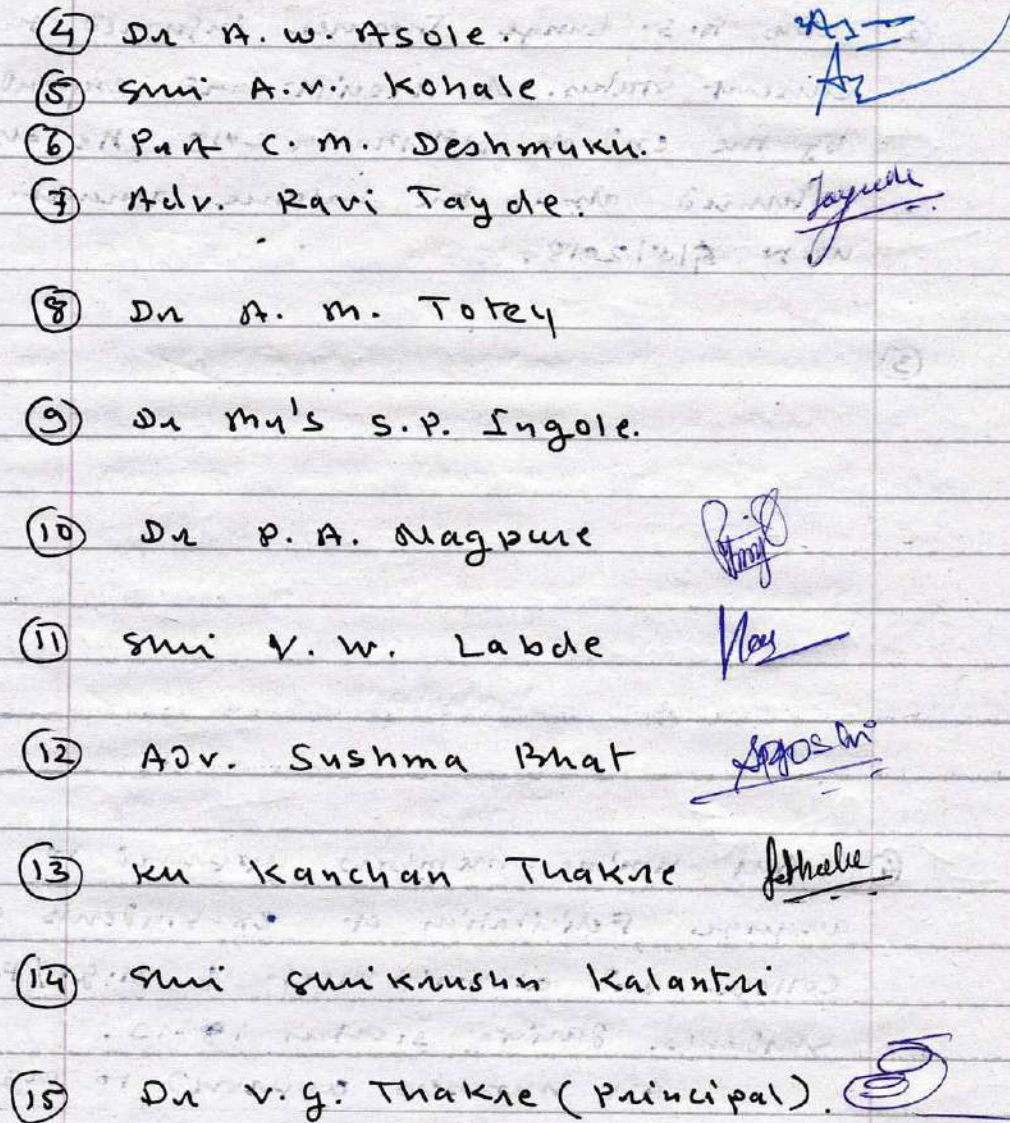 ④ Dr A. W. Asole.
⑤ Shri A.V. Kohale.
⑥ Prof C. M. Deshmukh.
⑦ Adv. Ravi Tayde.
⑧ Dr A. M. Totey
⑨ Dr Mrs S.P. Ingole.
⑩ Dr P. A. Nagpure
⑪ Shri V. W. Labde
⑫ Adv. Sushma Bhat
⑬ Ku Kanchan Thakre
⑭ Shri Shrikrushn Kalantri
⑮ Dr V. G. Thakre (Principal).